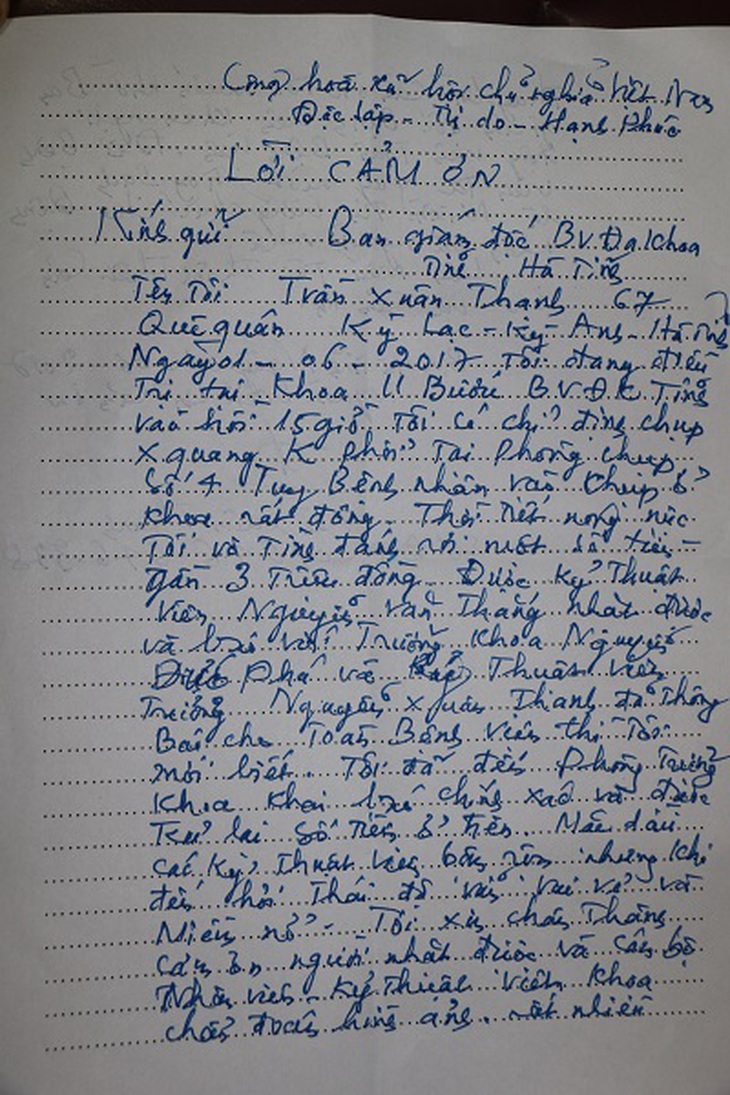 Cộng hoà xã hội chủ nghĩa Việt Nam
Độc lập - Tự do - Hạnh Phúc
LỜI CẢM ƠN
Kính gửi Ban giám đốc B.V. Đa khoa
Tỉnh Hà Tĩnh
Tên Tôi Trần Xuân Thanh 67
Quê quán Kỳ Lạc - Kỳ Anh - Hà Tĩnh
Ngày 01 - 06 - 2017 Tôi đang điều
Trị tại Khoa U Bướu B.V.Đ.K Tỉnh
vào hồi 15 giờ Tôi có chỉ định chụp
X quang K phổi Tại Phòng chụp
Số 4 Tuy Bệnh nhân vào chụp ở
khoa rất đông. Thời tiết nóng nực
Tôi vô Tình đánh rơi một số tiền
gần 3 Triệu đồng. Được kỷ Thuật
viên Nguyễn Văn Thắng nhặt được
và báo với Trưởng khoa Nguyễn
Phá và Thuật viên
Trưởng Nguyễn Xuân Thanh đã Thông
Báo cho Toàn Bệnh viện thì Tôi
mới biết. Tôi đã đến Phòng Trưởng
khoa khai báo chính xác và được
Trả lại số Tiền ở trên. Mặc dầu
các kỷ Thuật viên bận rộn nhưng khi
đến phải Thái độ vẫn vui vẻ và
Niềm nở - Tôi xin chân Thành
cảm ơn người nhặt được và cán bộ
Nhân viên - Kỷ Thuật viên khoa
chẩn đoán hình ảnh. rất nhiều